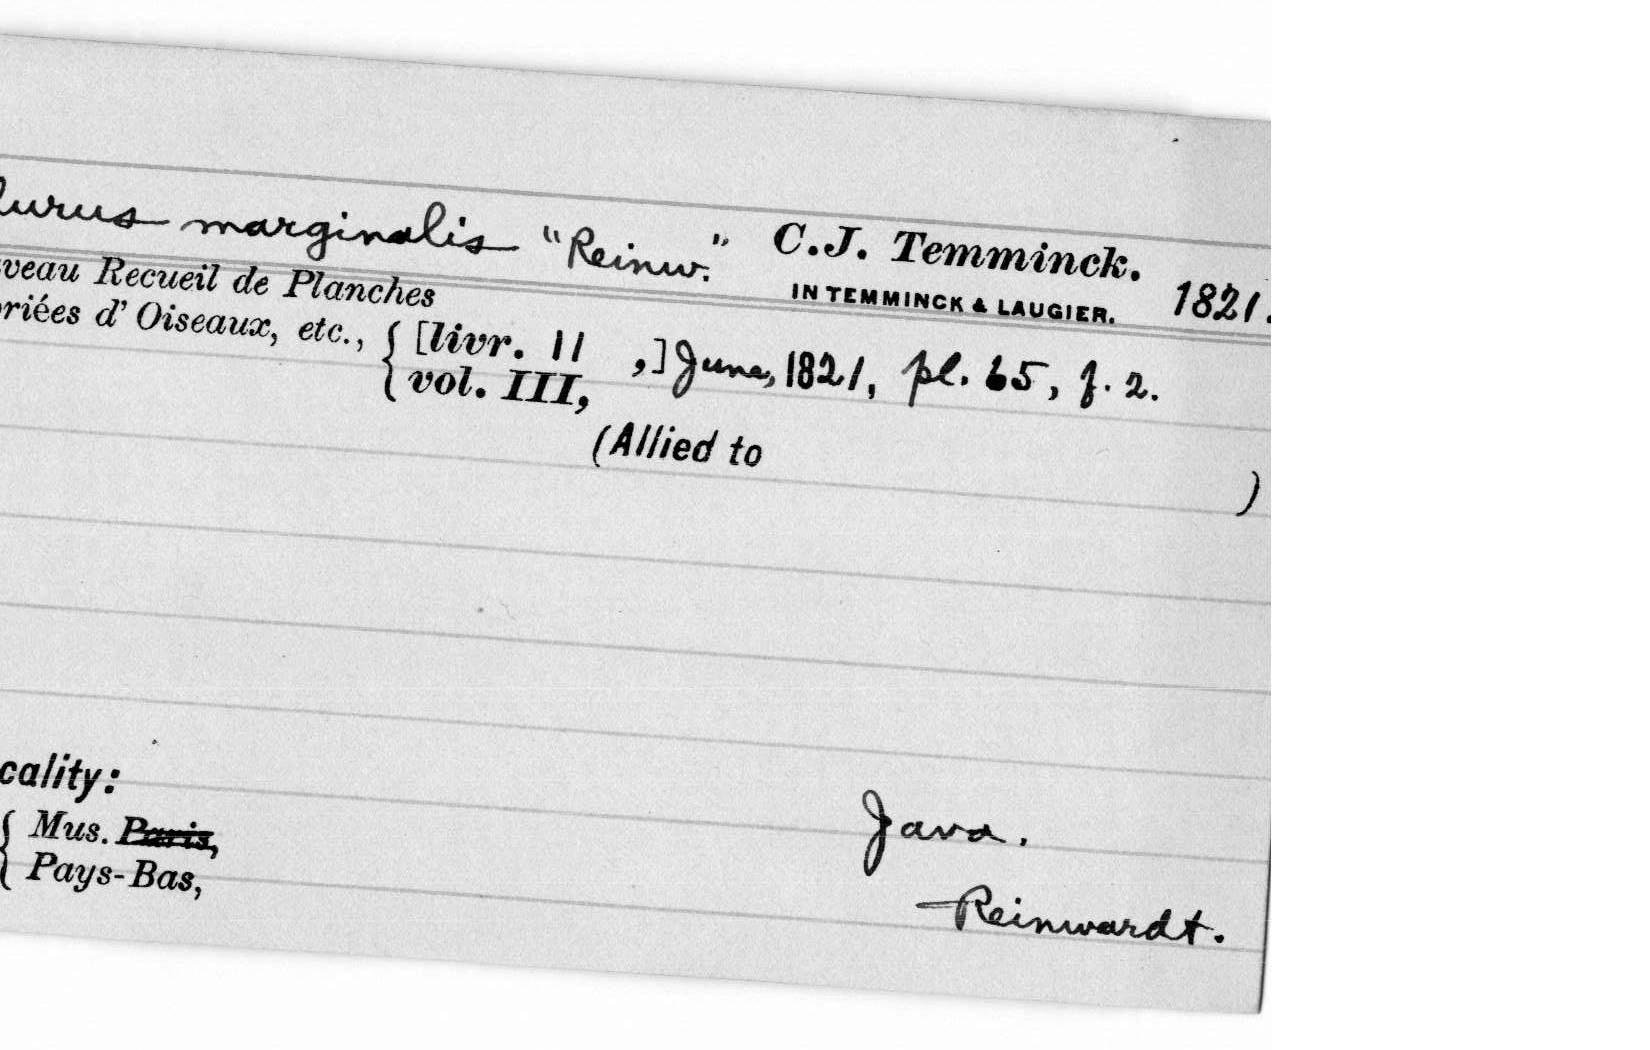 lurus marginalis "Reinw." C.J. Temminck. 1821.
IN TEMMINCK & LAUGIER.
veau Recueil de Planches
riées d' Oiseaux, etc., { [livr. 11 ,] June, 1821, pl. 65, f. 2.
vol. III,
(Allied to )
cality:
Java.
{ Mus. Paris,
Pays-Bas,
Reinwardt.